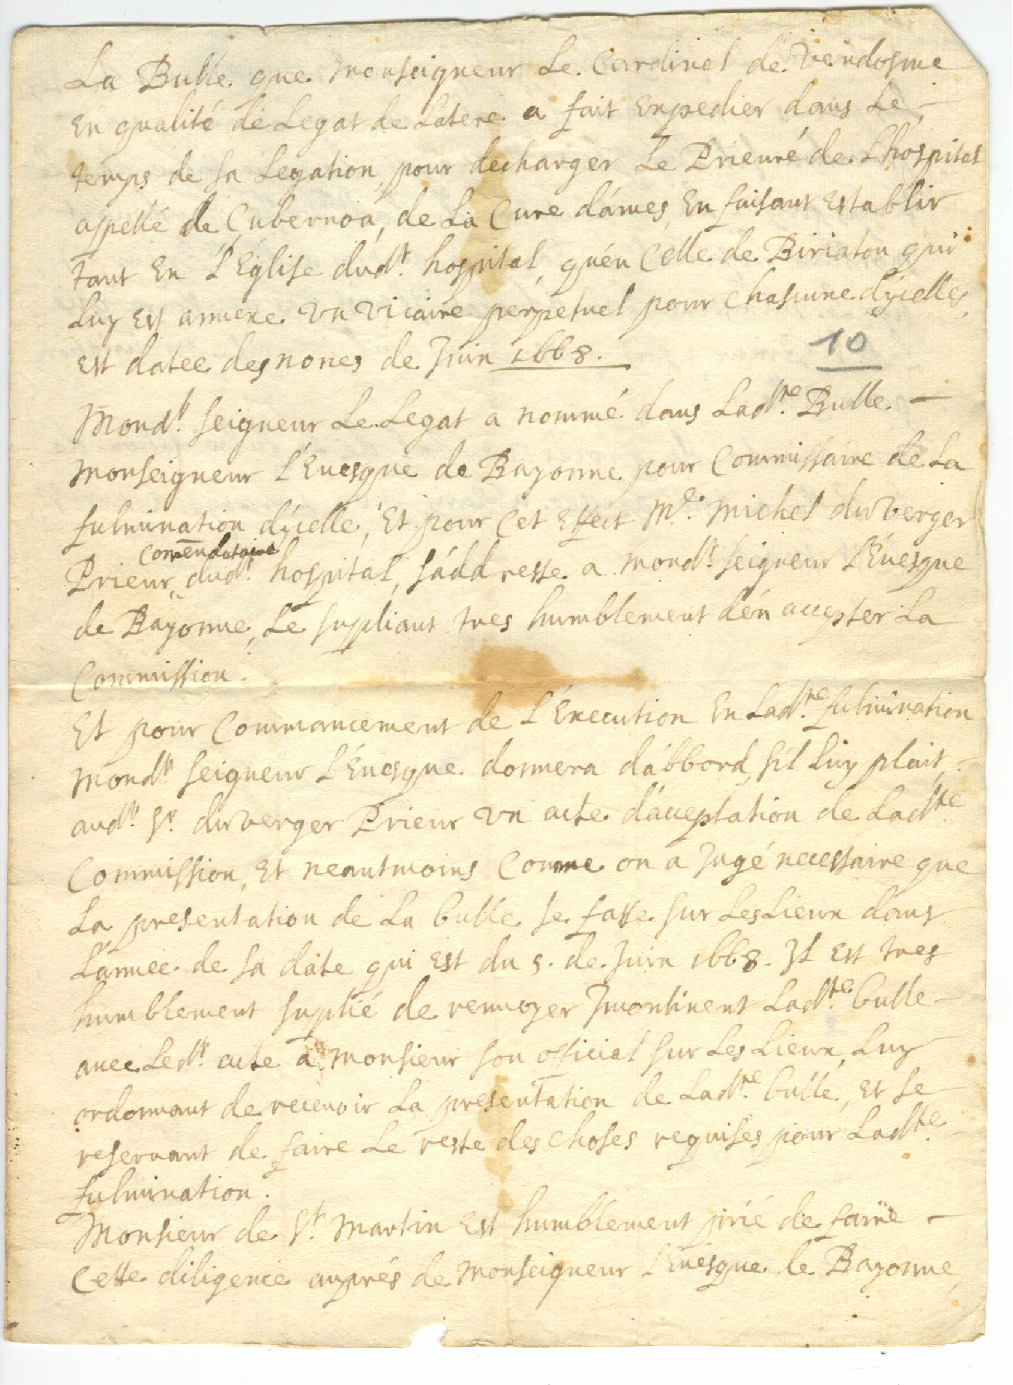 La Bulle que Monseigneur Le Cardinal de Vendosme
En qualité de Legat de Latere a fait Expedier dans Le
temps de sa Legation, pour decharger Le Prieuré de Lhospital
appellé de Cubernoa, de La Cure dámes, En faisant Establir
tant En L'Église dudt. hospital, quén Celle de Biriatou qui
Luy Est annexe Vn Vicaire perpetuel pour chascune dýcelles,
Est datee des nones de Juin 1668.
10
Mondt. seigneur Le Legat a nommé dans Ladte. Bulle
Monseigneur L'Euesque de Bayonne pour Commissaire de La
fulmination dýcelle, Et pour Cet Effect Me. Michel duverger
Comendataire
Prieur dudt. hospital, sáddresse a mondt. seigneur L'Euesque
de Bayonne, Le supliant tres humblement dén accepter La
Commission.
Et pour Commancement de L'Execution En Ladte. fulmination
mondt. seigneur L'Éuesque donnera dábbord, síl Luy plait,
audt. sr. duverger Prieur Vn acte dácceptation de Ladte.
Commission, Et neantmoins Comme on a Jugé necessaire que
La presentation de La bulle se fasse sur Les Lieux dans
L'annee de sa date qui Est du 5. de Juin 1668. Il Est tres
humblement suplié de renuoyer Jncontinent Ladte. bulle
auec Ledt. acte a Monsieur son official sur Les Lieux, Luy
ordonnant de receuoir La presentation de Ladte. bulle, Et se
reseruant de faire Le reste des choses requises pour Ladte.
fulmination.
Monsieur de St. Martin Est humblement prié de faire
Cette diligence auprés de Monseigneur L'Éuesque de Bayonne,